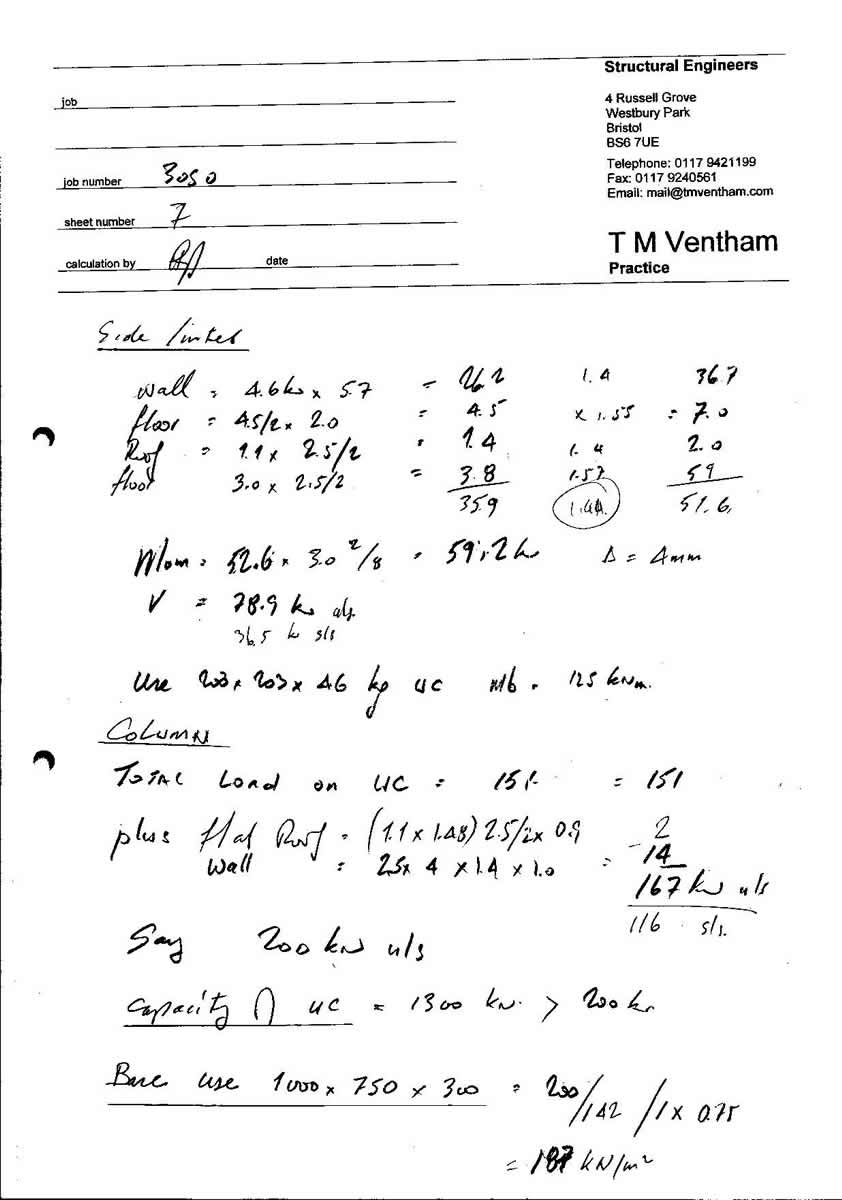 Structural Engineers
4 Russell Grove
Westbury Park
Bristol
BS6 7UE
Telephone: 0117 9421199
Fax: 0117 9240561
Email: mail@tmventham.com
T M Ventham
Practice
job
job number 3050
sheet number 7
calculation by date
Side lintel
Wall = 4.6 kN x 5.7 = 26.2 1.4 36.7
floor = 4.5/2 x 2.0 = 4.5 x 1.55 = 7.0
Roof = 1.1 x 2.5/2 = 1.4 1.4 2.0
floor 3.0 x 2.5/2 = 3.8 1.57 59
35.9 1.44. 51.6
Mom = 52.6 x 3.0²/8 = 59.2 kN Δ = 4mm
V = 78.9 kN
36.5 kN s/s
Use 203 x 203 x 46 kg UC Mb = 125 kNm.
COLUMN
TOTAL Load on UC = 151 = 151
plus flat Roof = (1.1 x 1.48) 2.5/2 x 0.9 2
Wall = 2.5 x 4 x 1.4 x 1.0 = 14
167 kN u/s
116 s/s.
Say 200 kN u/s
Capacity of UC = 1300 kN. > 200 kN
Base use 1000 x 750 x 300 = 200/1.42 /1 x 0.75
= 187 kN/m²